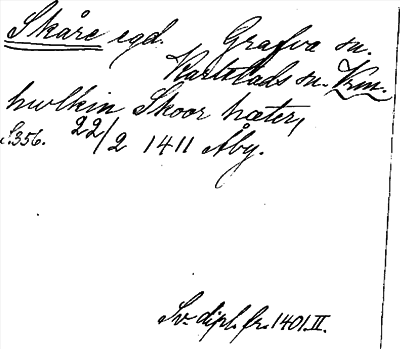 Skåre egd. Grafva sn.
Karlstads sn. Krm.
hwlkin Skoor hæter,
S.356. 22/2 1411 Åby.
Sv. dipl. fr. 1401. II.